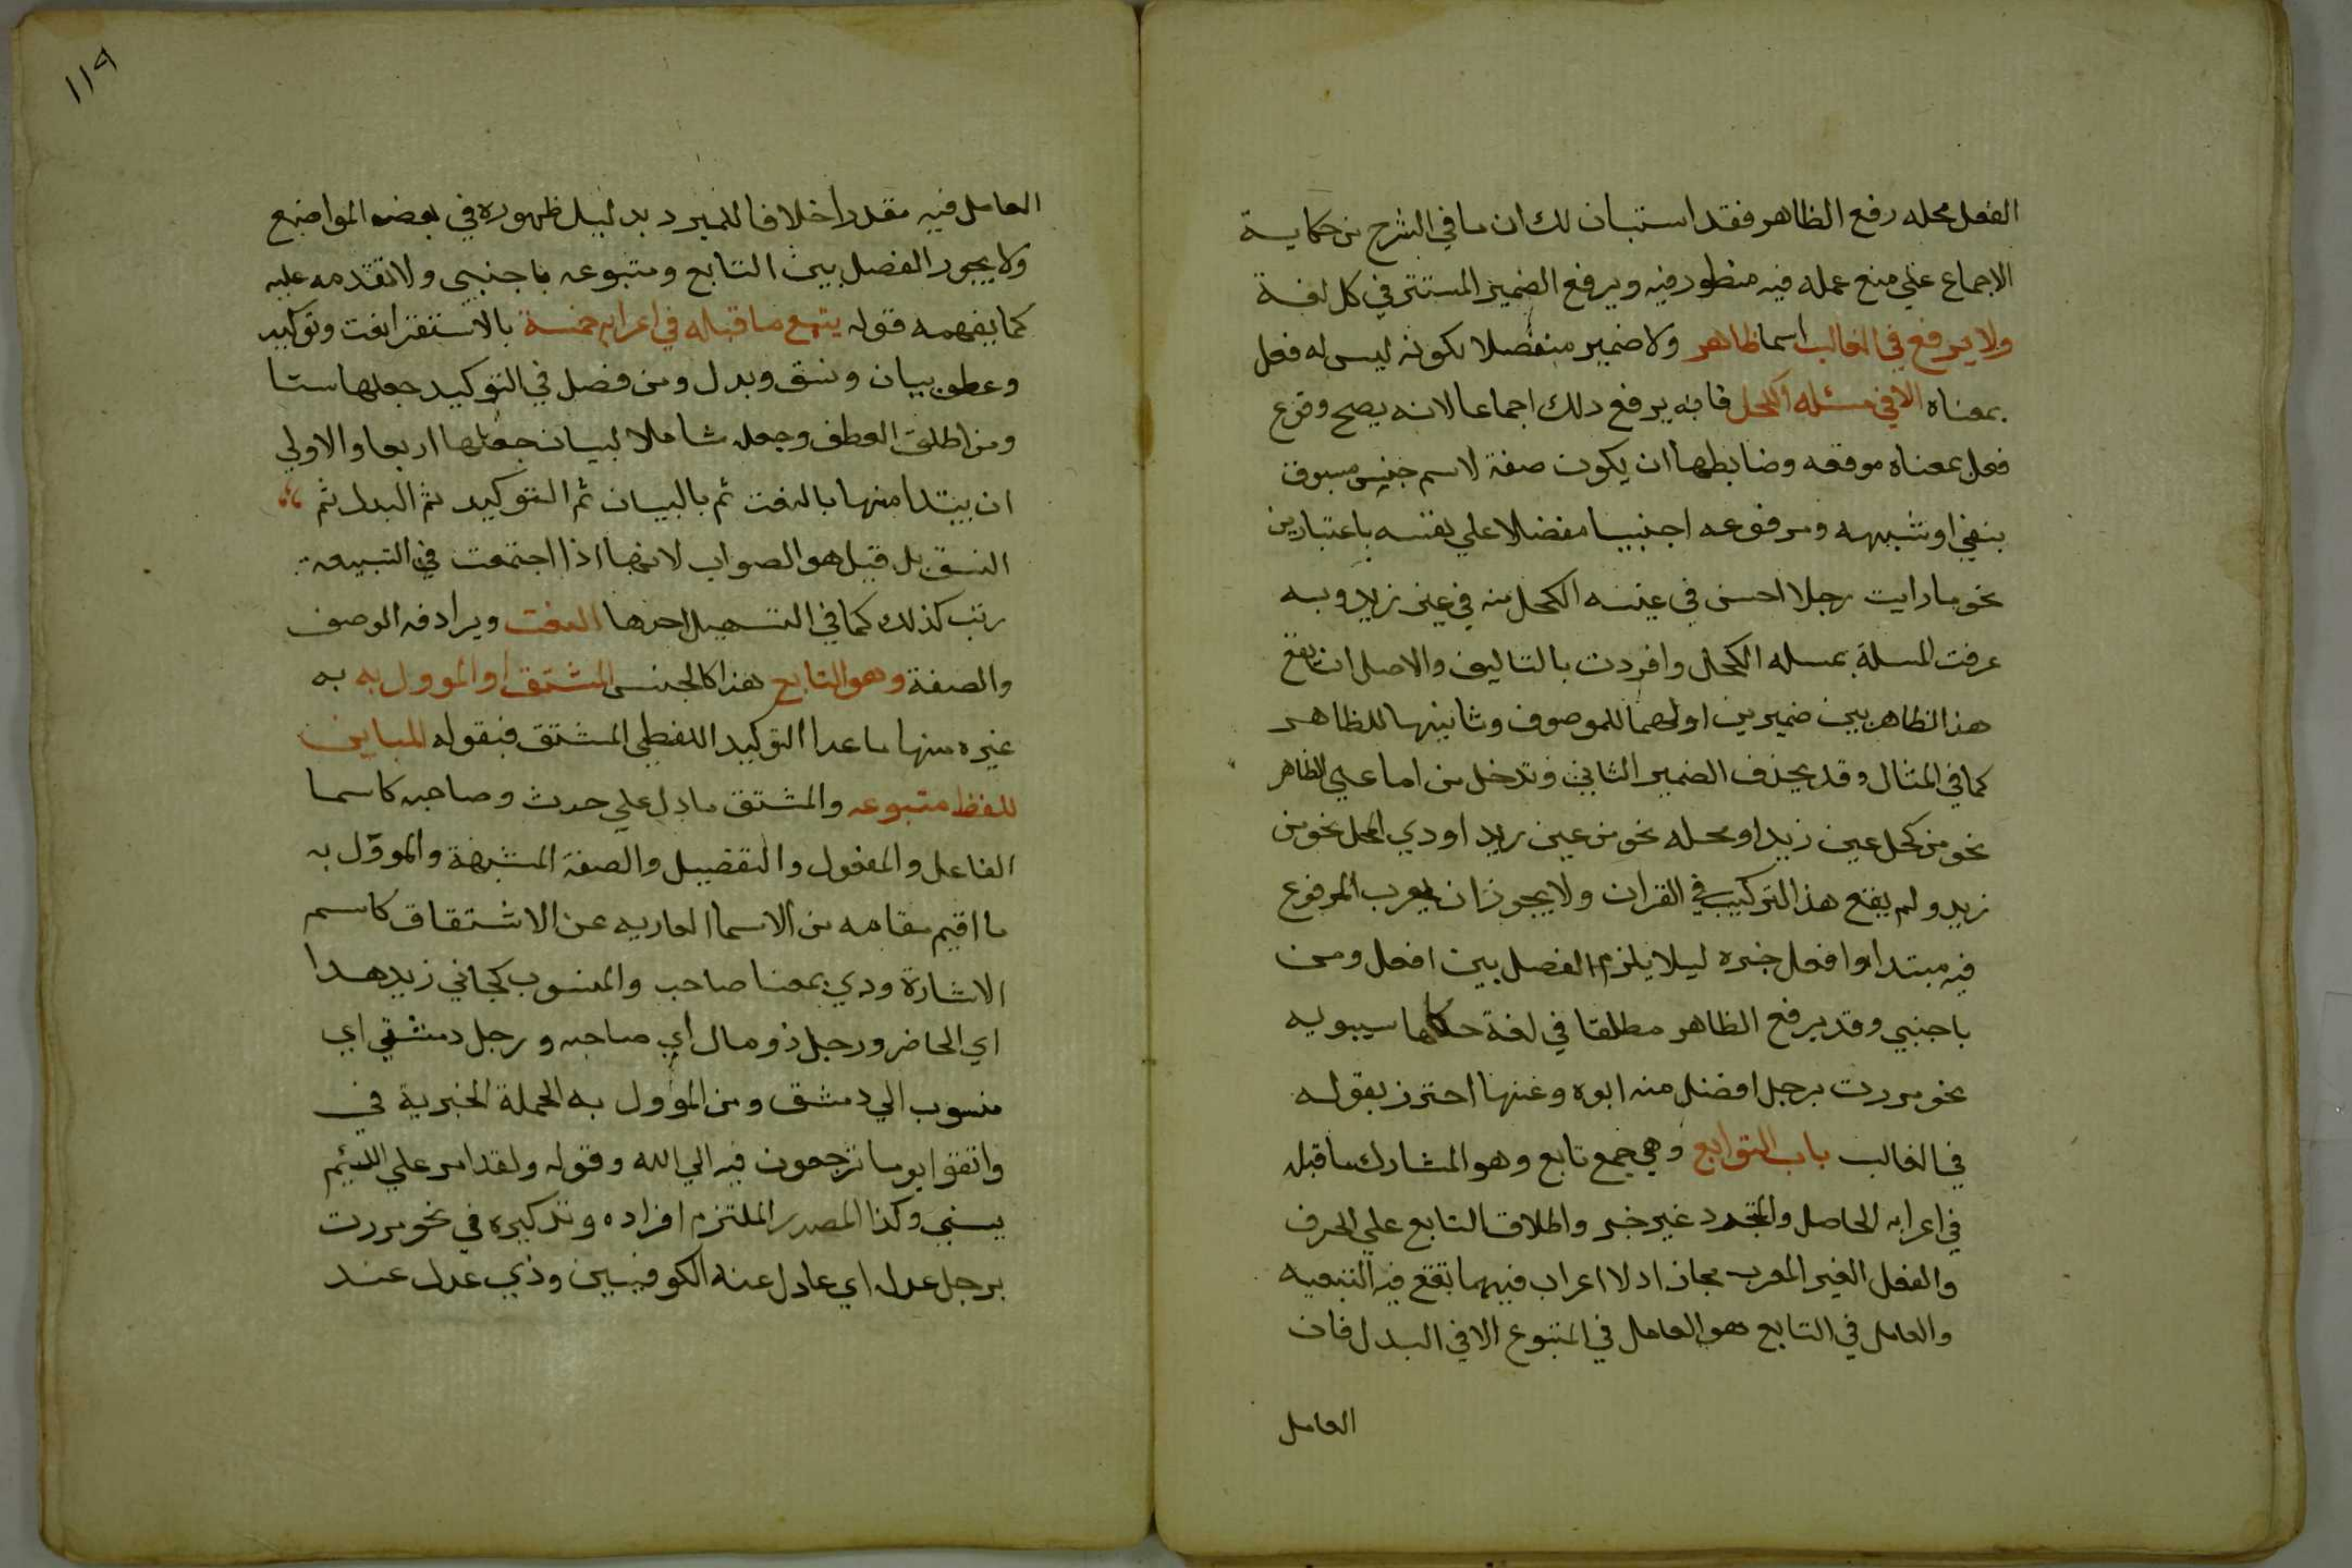 الفعل محله رفع الظاهر فقد استبان لك ان ما في الشرح من حكاية
الاجماع علي منع عمله فيه منظور فيه ويرفع الضمير المستتر في كل لغة
ولا يرفع في الغالب اسما ظاهر ولا ضمير منفصلا لكونه ليس له فعل
بمعناه الا في مسئله الكحل فانه يرفع دلك اجماعا لانه يصح وقوع
فعل بمعناه موقعه وضابطها ان يكون صفة لاسم جنس مسبوق
بنفي او شبهه ومرفوعه اجنبيا مفضلا علي نفسه باعتبارين
نحو ما رايت رجلا احسن في عينه الكحل منه في عين زيد وبه
عرفت المسلة بمسله الكحل وافردت بالتاليف والاصل ان يقع
هذا الظاهر بين ضميرين اولهما للموصوف وثانيهما للظاهر
كما في المثال وقد يحذف الضمير الثاني وتدخل من اما علي الظاهر
نحو من كحل عين زيد او محله نحو من عين زيد او دي المحل نحو من
زيد ولم يقع هذا التركيب في القران ولا يجوز ان يعرب المرفوع
فيه مبتدا وافعل خبره ليلا يلزم الفصل بين افعل ومن
باجنبي وقد يرفع الظاهر مطلقا في لغة حكاها سيبويه
نحو مررت برجل افضل منه ابوه وعنها احترز بقوله
في الغالب باب التوابع وهي جمع تابع وهو المشارك ما قبله
في اعرابه الحاصل والمتجدد غير خبر واطلاق التابع علي الحرف
والفعل الغير المعرب مجاز اد لا اعراب فيهما تقع فيه التبعيه
والعامل في التابع هو العامل في المتبوع الا في البدل فان
العامل
١١٩
العامل فيه مقدر اخلافا للمبرد بدليل ظهوره في بعض المواضع
ولا يجوز الفصل بين التابع ومتبوعه باجنبي ولا تقدمه عليه
كما يفهمه قوله يتبع ما قبله في اعرابه خمسة بالاستقرا نعت وتوكيد
وعطف بيان ونسق وبدل ومن فصل في التوكيد جعلها ستا
ومن اطلق العطف وجعله شاملا لبيان جعلها اربعا والاولي
ان يبتدا منها بالنعت ثم بالبيان ثم التوكيد ثم البدل ثم
النسق بل قيل هو الصواب لانها اذا اجتمعت في التبيعة
رتب كذلك كما في التسهيل احدها النعت ويرادفه الوصف
والصفة وهو التابع هذا كالجنس المشتق او الموول به به
غيره منها ما عدا التوكيد اللفظي المشتق فبقوله المباين
للفظ متبوعه والمشتق ما دل علي حدث وصاحبه كاسما
الفاعل والمفعول والتفضيل والصفة المشبهة والموول به
ما اقيم مقامه من الاسما العاريه عن الاشتقاق كاسم
الاشارة ودي بمعنا صاحب والمنسوب كجاني زيد هدا
اي الحاضر ورجل ذو مال اي صاحبه ورجل دمشقي اي
منسوب الي دمشق ومن الموول به الجملة الخبرية في
واتقوا يوما ترجعون فيه الي الله وقوله ولقد امر علي اللئيم
يسبني وكذا المصدر الملتزم افراده وتذكيره في نحو مررت
برجل عدل اي عادل عند الكوفيين وذي عدل عند